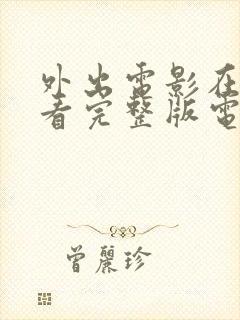 外出電影在
看完整版電
曾麗珍